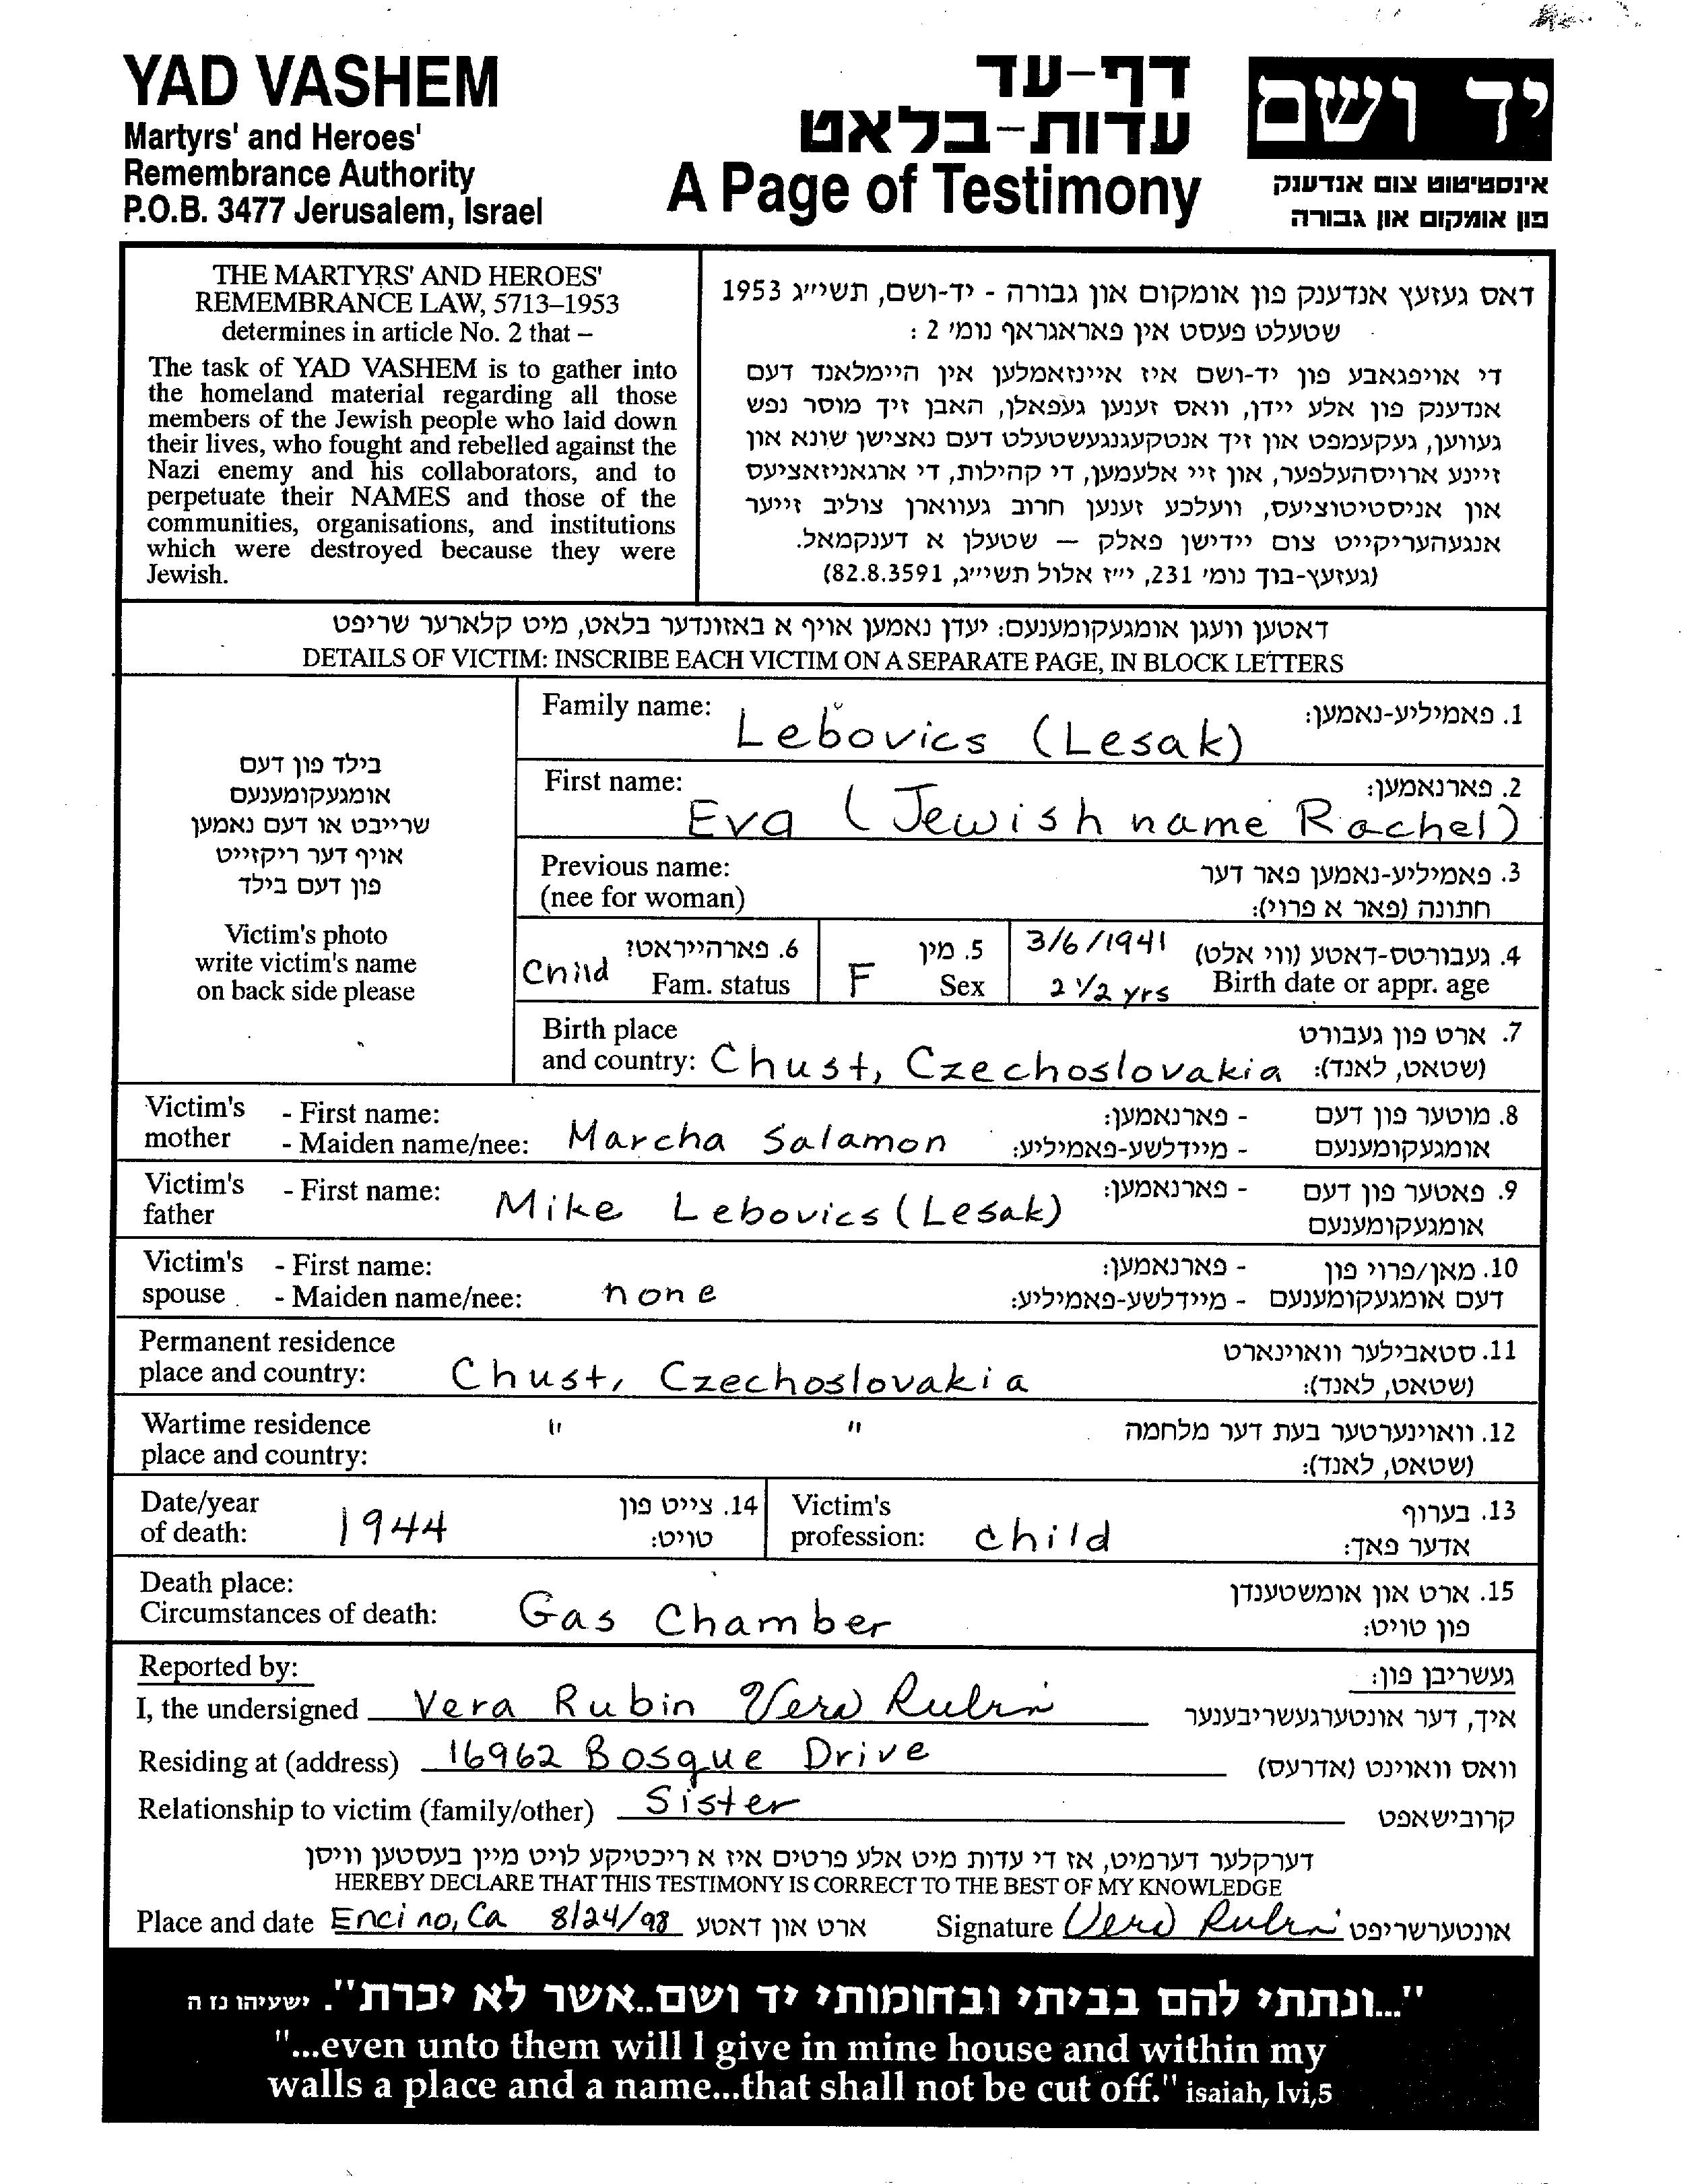 YAD VASHEM
Martyrs' and Heroes'
Remembrance Authority
P.O.B. 3477 Jerusalem, Israel
דף-עד
עדות-בלאט
A Page of Testimony
יד ושם
אינסטיטוט צום אנדענק
פון אומקום און גבורה
THE MARTYRS' AND HEROES'
REMEMBRANCE LAW, 5713–1953
determines in article No. 2 that –
The task of YAD VASHEM is to gather into
the homeland material regarding all those
members of the Jewish people who laid down
their lives, who fought and rebelled against the
Nazi enemy and his collaborators, and to
perpetuate their NAMES and those of the
communities, organisations, and institutions
which were destroyed because they were
Jewish.
דאס געזעץ אנדענק פון אומקום און גבורה - יד-ושם, תשי״ג 1953
שטעלט פעסט אין פאראגראף נומ׳ 2 :
די אויפגאבע פון יד-ושם איז איינזאמלען אין היימלאנד דעם
אנדענק פון אלע יידן, וואס זענען געפאלן, האבן זיך מוסר נפש
געווען, געקעמפט און זיך אנטקעגנגעשטעלט דעם נאצישן שונא און
זיינע ארויסהעלפער, און זיי אלעמען, די קהילות, די ארגאניזאציעס
און אניסטיטוציעס, וועלכע זענען חרוב געווארן צוליב זייער
אנגעהעריקייט צום יידישן פאלק – שטעלן א דענקמאל.
(געזעץ-בוך נומ׳ 231, י״ז אלול תשי״ג, 82.8.3591)
דאטען וועגן אומגעקומענעם: יעדן נאמען אויף א באזונדער בלאט, מיט קלארער שריפט
DETAILS OF VICTIM: INSCRIBE EACH VICTIM ON A SEPARATE PAGE, IN BLOCK LETTERS
בילד פון דעם
אומגעקומענעם
שרייבט או דעם נאמען
אויף דער ריקזייט
פון דעם בילד
Victim's photo
write victim's name
on back side please
Family name: Lebovics (Lesak) 1. פאמיליע-נאמען:
First name: Eva (Jewish name Rachel) 2. פארנאמען:
Previous name: 3. פאמיליע-נאמען פאר דער
(nee for woman) חתונה (פאר א פרוי):
6. פארהייראט? 5. מין 3/6/1941 4. געבורטס-דאטע (ווי אלט)
Child Fam. status F Sex 2 1/2 yrs Birth date or appr. age
Birth place 7. ארט פון געבורט
and country: Chust, Czechoslovakia (שטאט, לאנד):
Victim's - First name: - פארנאמען: 8. מוטער פון דעם
mother - Maiden name/nee: Marcha Salamon - מיידלשע-פאמיליע: אומגעקומענעם
Victim's - First name: Mike Lebovics (Lesak) - פארנאמען: 9. פאטער פון דעם
father אומגעקומענעם
Victim's - First name: - פארנאמען: 10. מאן/פרוי פון
spouse - Maiden name/nee: none - מיידלשע-פאמיליע: דעם אומגעקומענעם
Permanent residence 11. סטאבילער וואוינארט
place and country: Chust, Czechoslovakia (שטאט, לאנד):
Wartime residence " " 12. וואוינערטער בעת דער מלחמה
place and country: (שטאט, לאנד):
Date/year 14. צייט פון Victim's 13. בערוף
of death: 1944 טויט: profession: child אדער פאך:
Death place: 15. ארט און אומשטענדן
Circumstances of death: Gas Chamber פון טויט:
Reported by: געשריבן פון:
I, the undersigned Vera Rubin Vera Rubin איך, דער אונטערגעשריבענער
Residing at (address) 16962 Bosque Drive וואס וואוינט (אדרעס)
Relationship to victim (family/other) Sister קרובישאפט
דערקלער דערמיט, אז די עדות מיט אלע פרטים איז א ריכטיקע לויט מיין בעסטען וויסן
HEREBY DECLARE THAT THIS TESTIMONY IS CORRECT TO THE BEST OF MY KNOWLEDGE
Place and date Encino, Ca 8/24/98 ארט און דאטע Signature Vera Rubin אונטערשריפט
"...ונתתי להם בביתי ובחומותי יד ושם..אשר לא יכרת". ישעיהו נז ה
"...even unto them will I give in mine house and within my
walls a place and a name...that shall not be cut off." isaiah, lvi,5